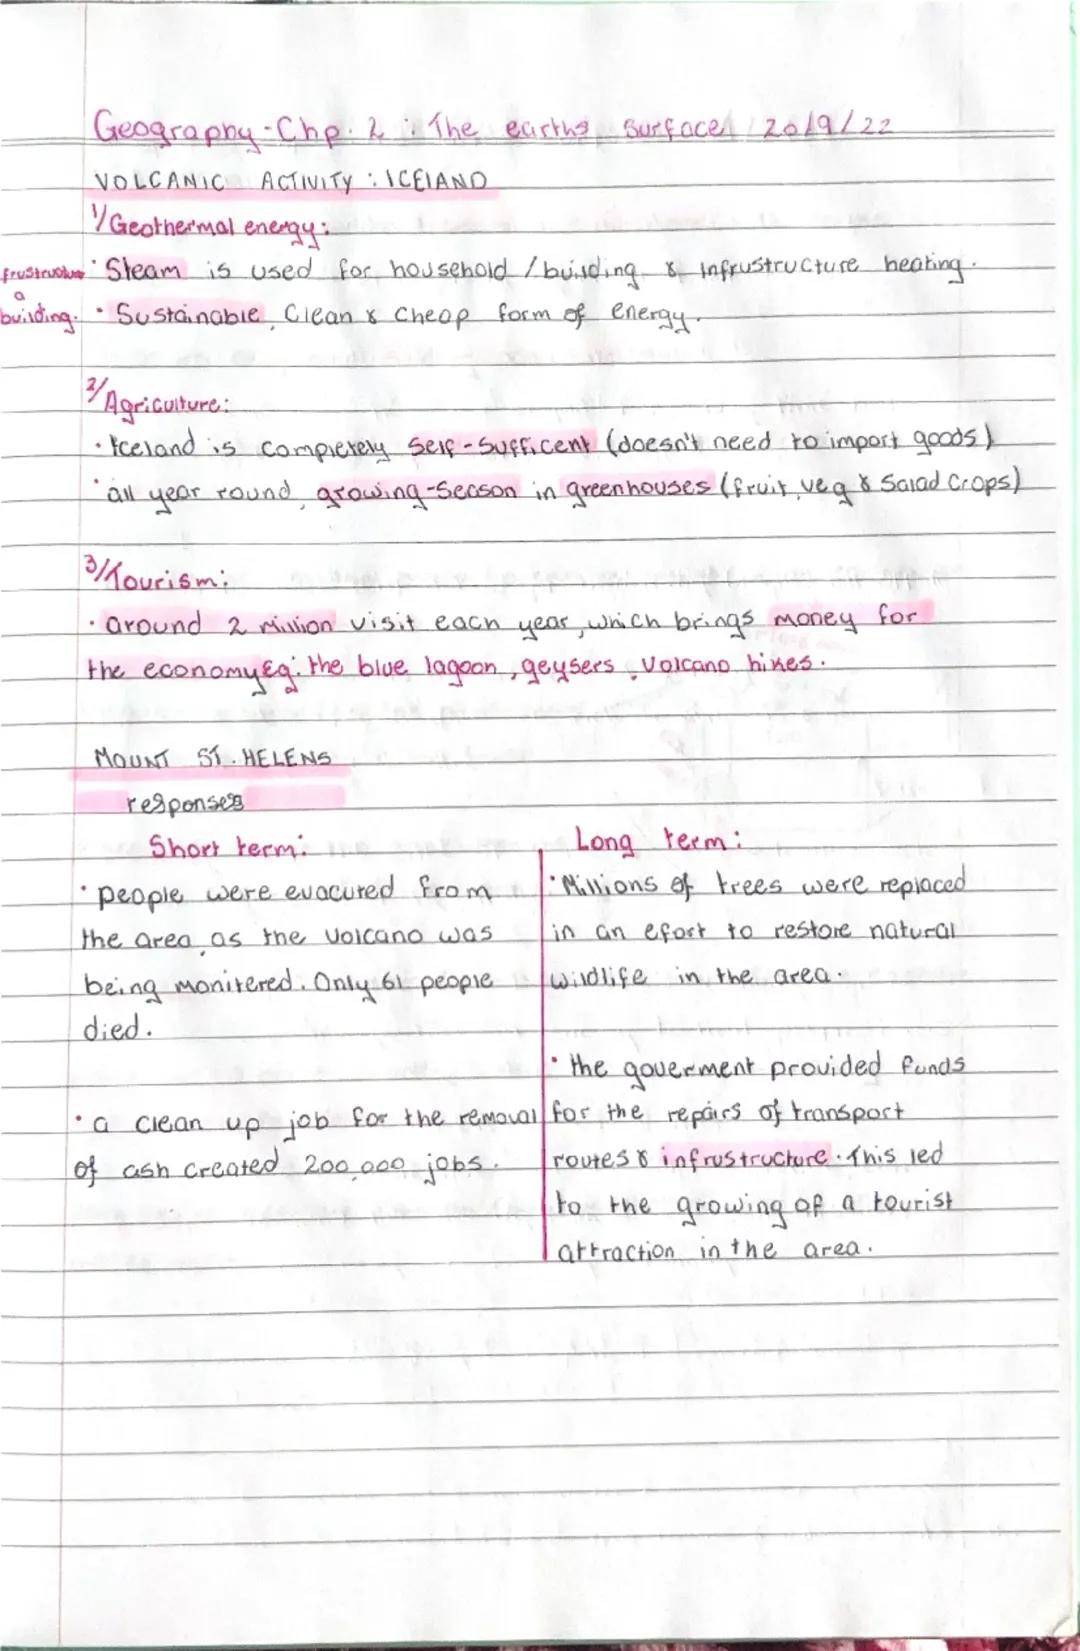 Geography - Chp. 2 : The earths surface 20/9/22
VOLCANIC ACTIVITY : ICELAND
1/ Geothermal energy:
frustructure
a
building.
· Steam is used for household / building & infrustructure heating.
· Sustainable, Clean & Cheap form of energy.
2/ Agriculture:
· Iceland is completely self-sufficent (doesn't need to import goods)
· all year round, growing-season in greenhouses (fruit, veg & Salad Crops)
3/ Tourism:
· around 2 million visit each year, which brings money for
the economy Eg: the blue lagoon, geysers, volcano hikes.
MOUNT ST. HELENS
responses
Short term:
· people were evacured from
the area as the volcano was
being monitered. Only 61 people
died.
· a clean up job for the removal
of ash created 200,000 jobs.
Long term:
· Millions of trees were replaced
in an efort to restore natural
wildlife in the area.
· the goverment provided funds
for the repairs of transport
routes & infrustructure. This led
to the growing of a tourist
attraction in the area.